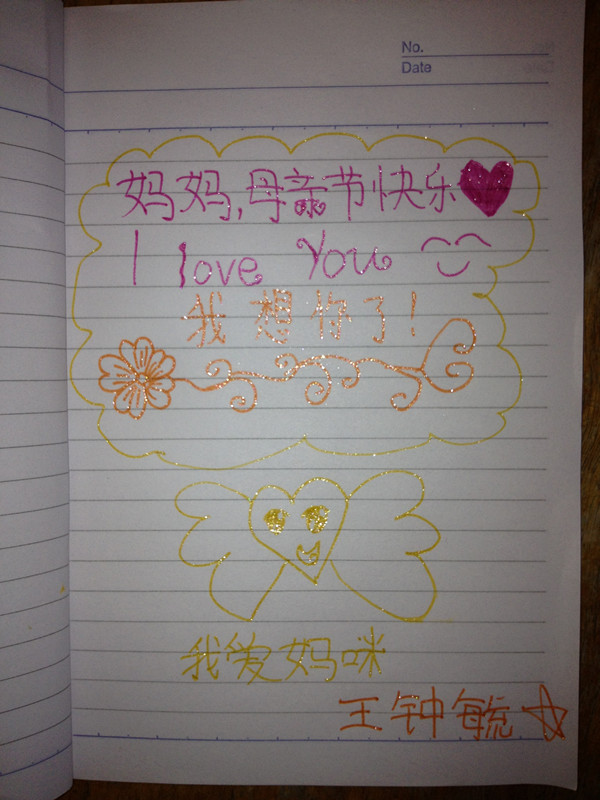 No.
Date
妈妈,母亲节快乐
I love You
我想你了!
我爱妈咪
王钟毓